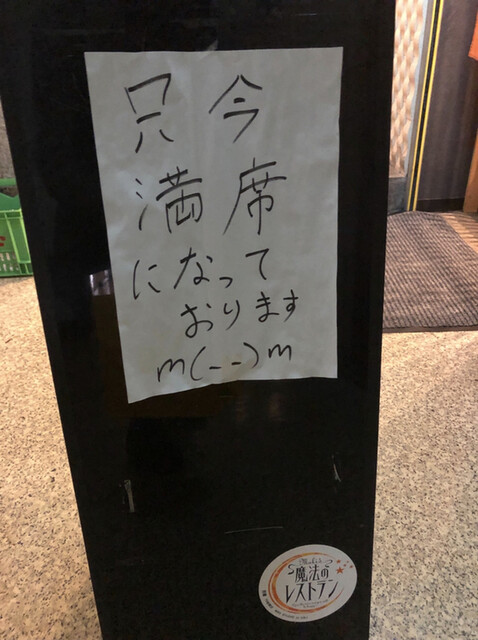 只今
満席
になって
おります
m(--)m
魔法の
レストラン